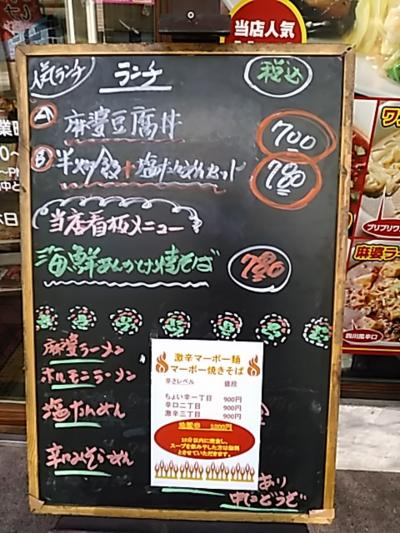 当店人気
人気ランチ
ランチ
税込
A 麻婆豆腐丼
700
B 半炒飯+塩たんめんセット
780
当店看板メニュー
海鮮あんかけ焼そば
780
麻婆ラーメン
ホルモンラーメン
塩たんめん
辛口みそらーめん
激辛マーボー麺
マーボー焼きそば
辛さレベル 値段
ちょい辛一丁目 900円
辛口二丁目 900円
激辛三丁目 900円
1000円
スープを飲み干した方は無料
とさせていただきます。
あり
中にどうぞ
プリプリワ
麻婆ラ
四川風辛口